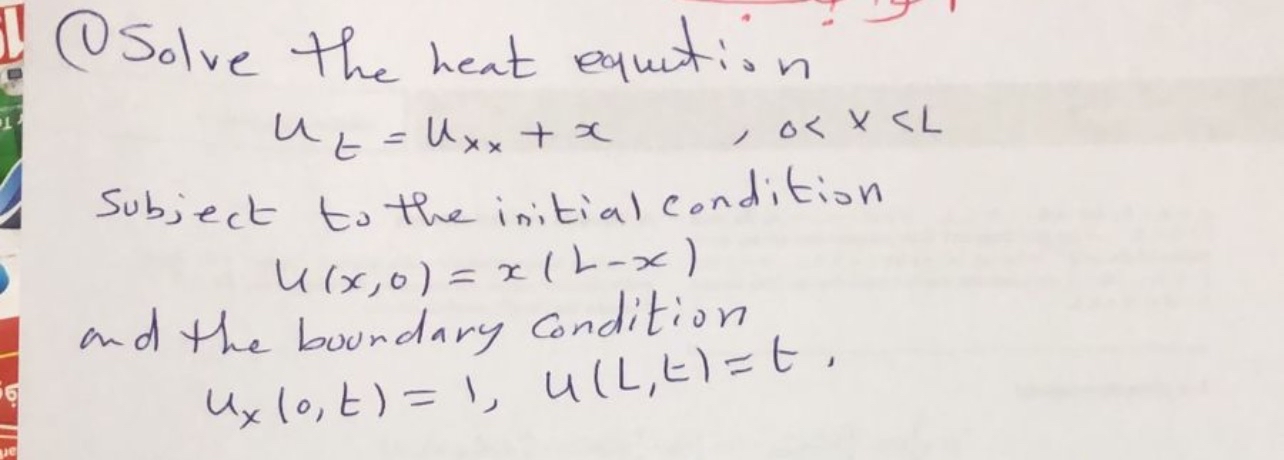 ① Solve the heat equation
u_t = u_xx + x , 0< x <L
Subject to the initial condition
u(x,0) = x(L-x)
and the boundary condition
u_x(0,t) = 1, u(L,t) = t .